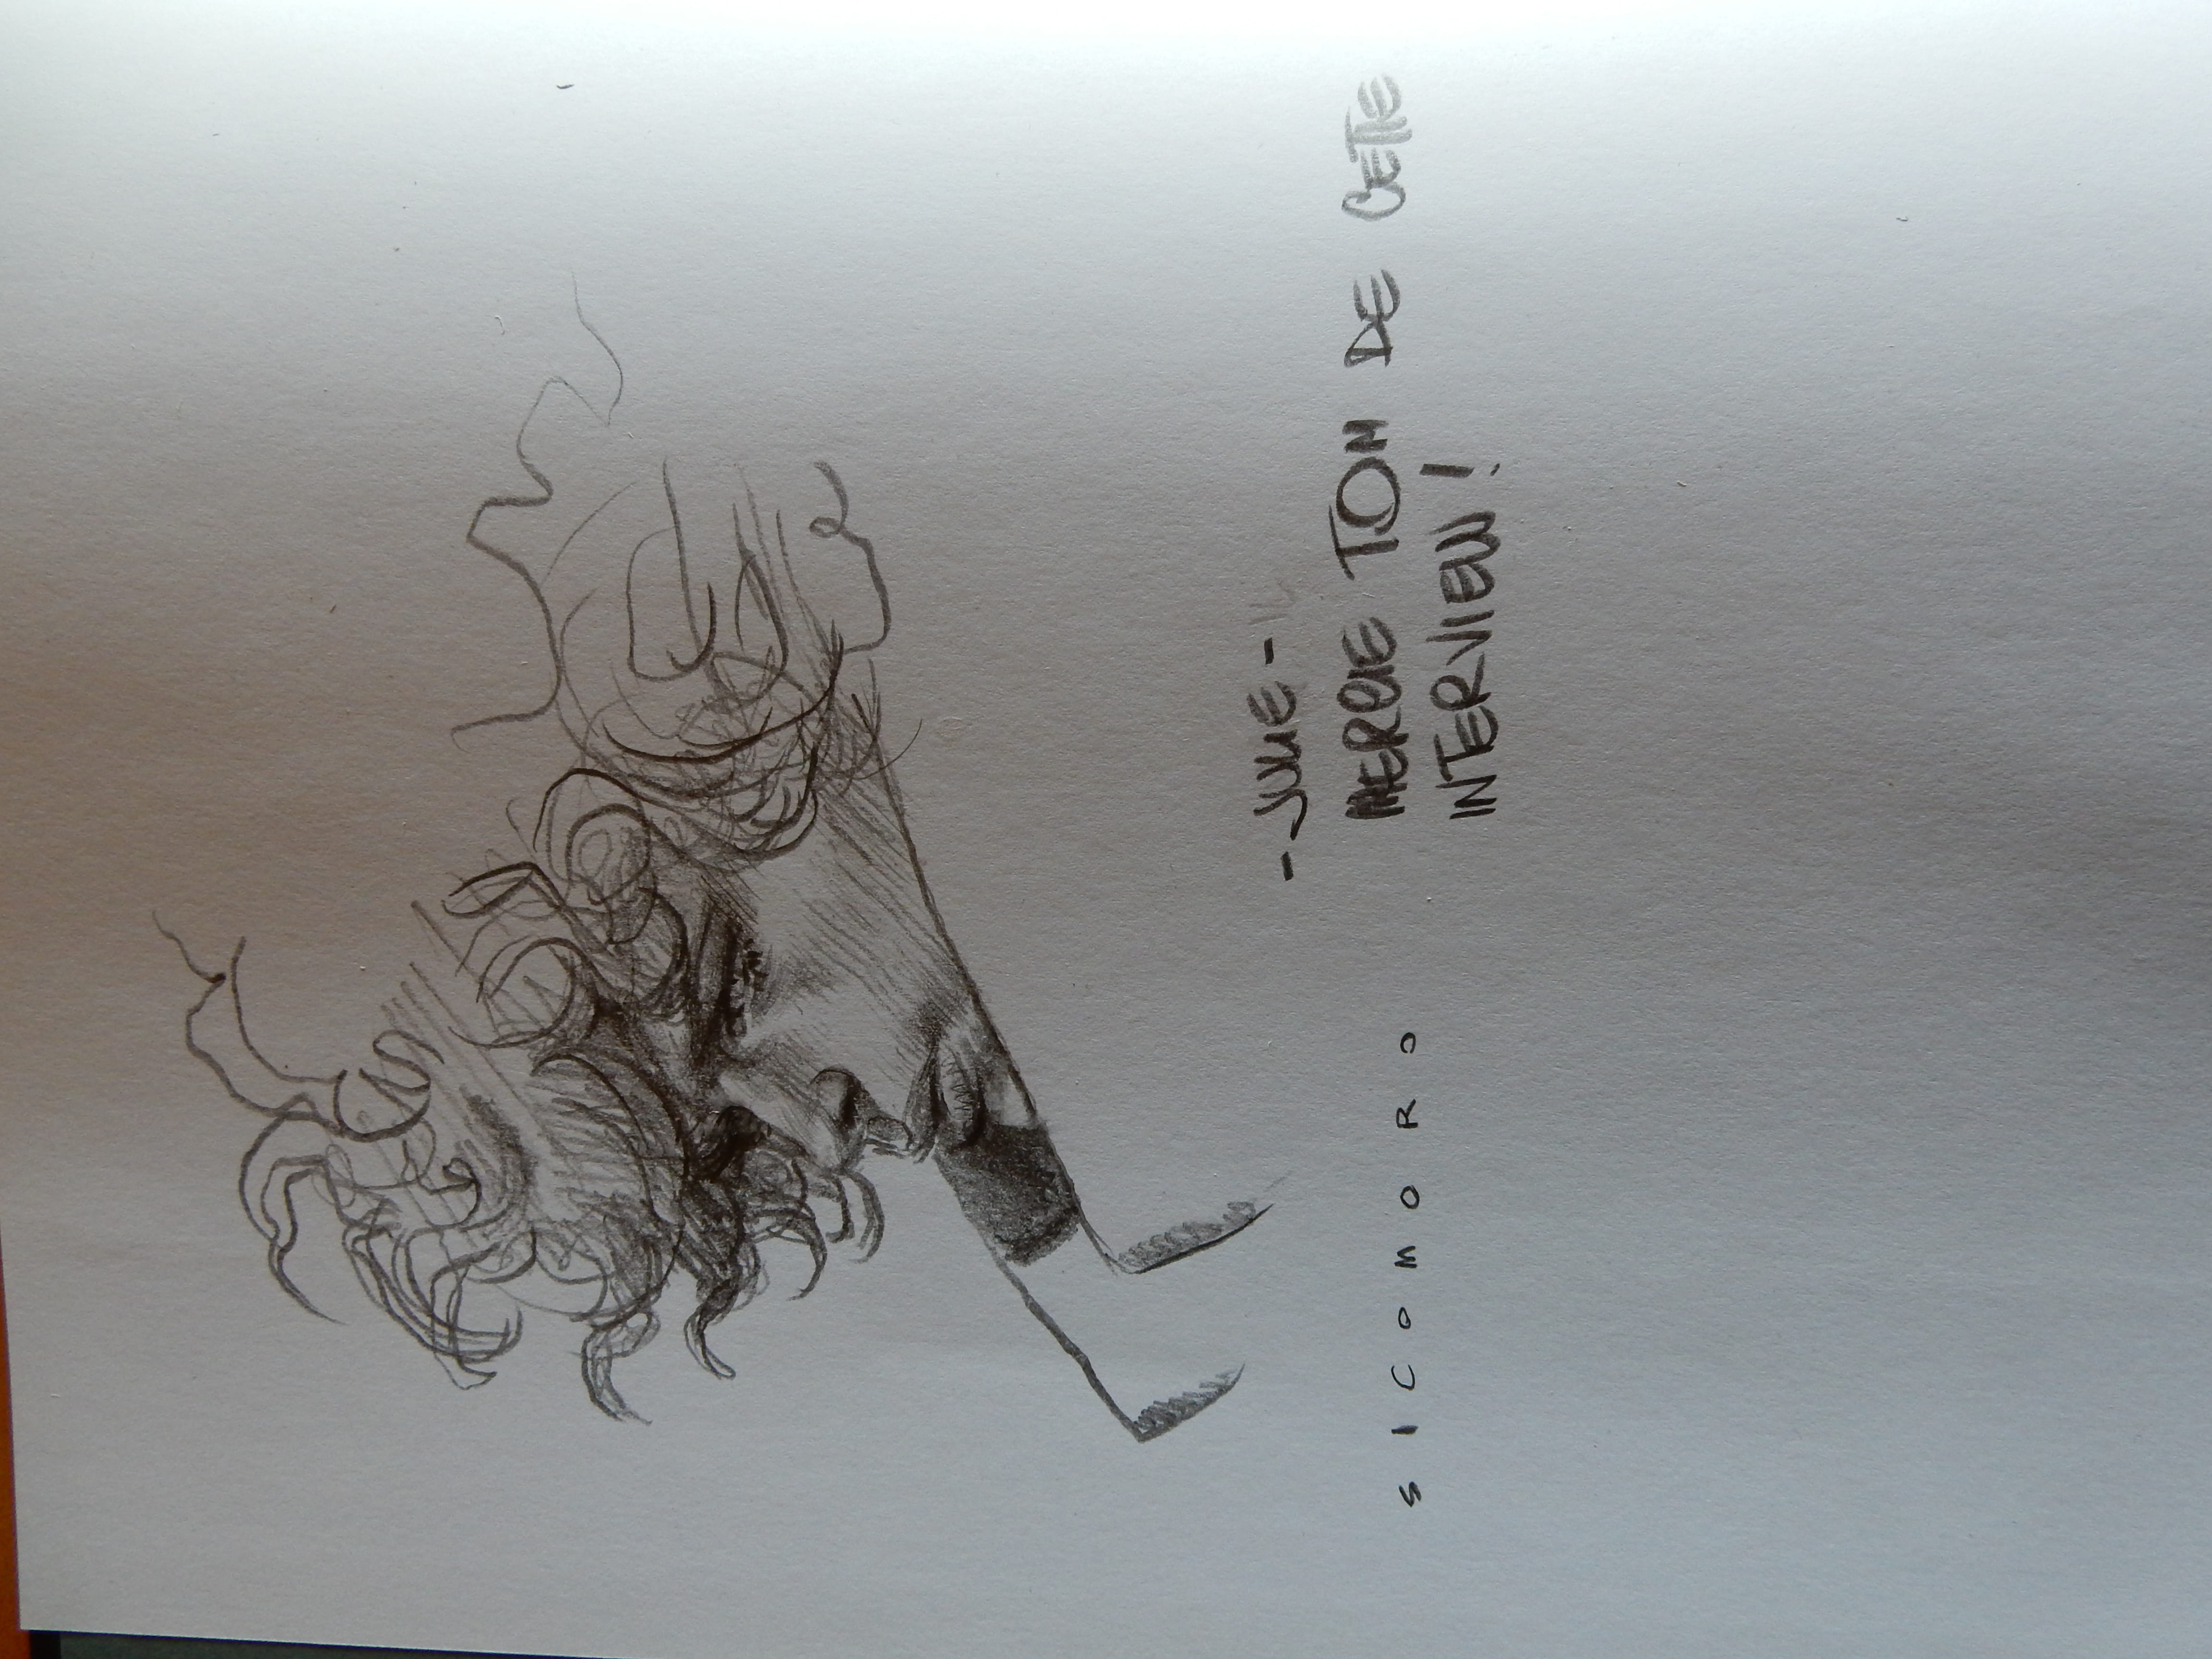 - JULIE -
MERCIE TOM DE CETTE
INTERVIEW !
SICOMORO